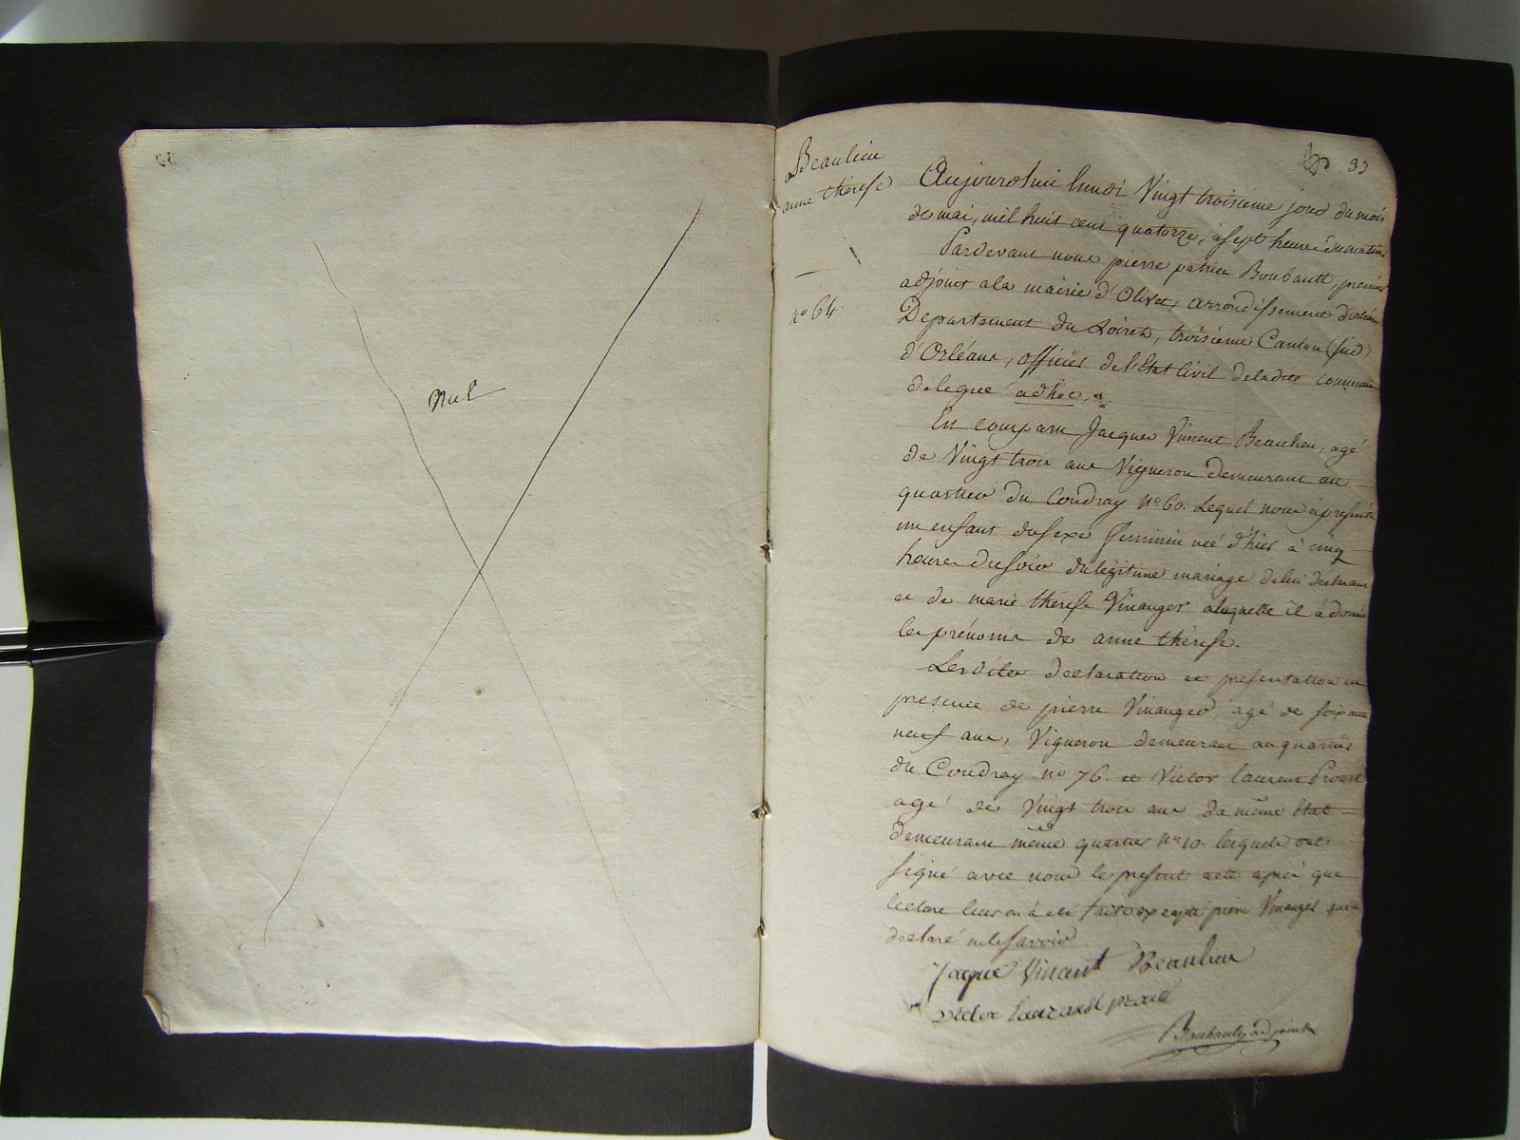 Nul
Beaulieu
anne thérese
n° 64
33
Aujourd'hui lundi Vingt troisieme jour du mois
de mai, mil huit cent quatorze, à sept heure du matin
Pardevant nous pierre patrice Boubault premier
adjoint a la mairie d'Olivet, arrondissement d'orléans
Departement du Loiret, troisieme Canton (sud)
d'Orléans, officier de l'Etat Civil de ladite commune
délégué adhoc,
Est comparu Jacques Vincent Beaulieu, agé
de Vingt trois ans Vigneron demeurant au
quartier du Coudray n° 60. Lequel nous à présenté
un enfant du sexe feminin neé d'hier à cinq
heures du soir du légitime mariage de lui declarant
et de marie thérese Vinauger alaquelle il à donné
les prénoms de anne thérese.
Lesdites declaration et presentation en
presence de pierre Vinauger agé de soixante
neuf ans, Vigneron demeurant au quartier
du Coudray n° 76. et Victor laurent Proust
agé de Vingt trois ans de même état
demeurant même quartier n° 10. lesquels ont
signé avec nous le present acte après que
lecture leur en à été faite excepté pierre Vinauger qui a
declaré ne le savoir
Jaque Vincent Beaulieu
victor laurand
Boubault adjoint